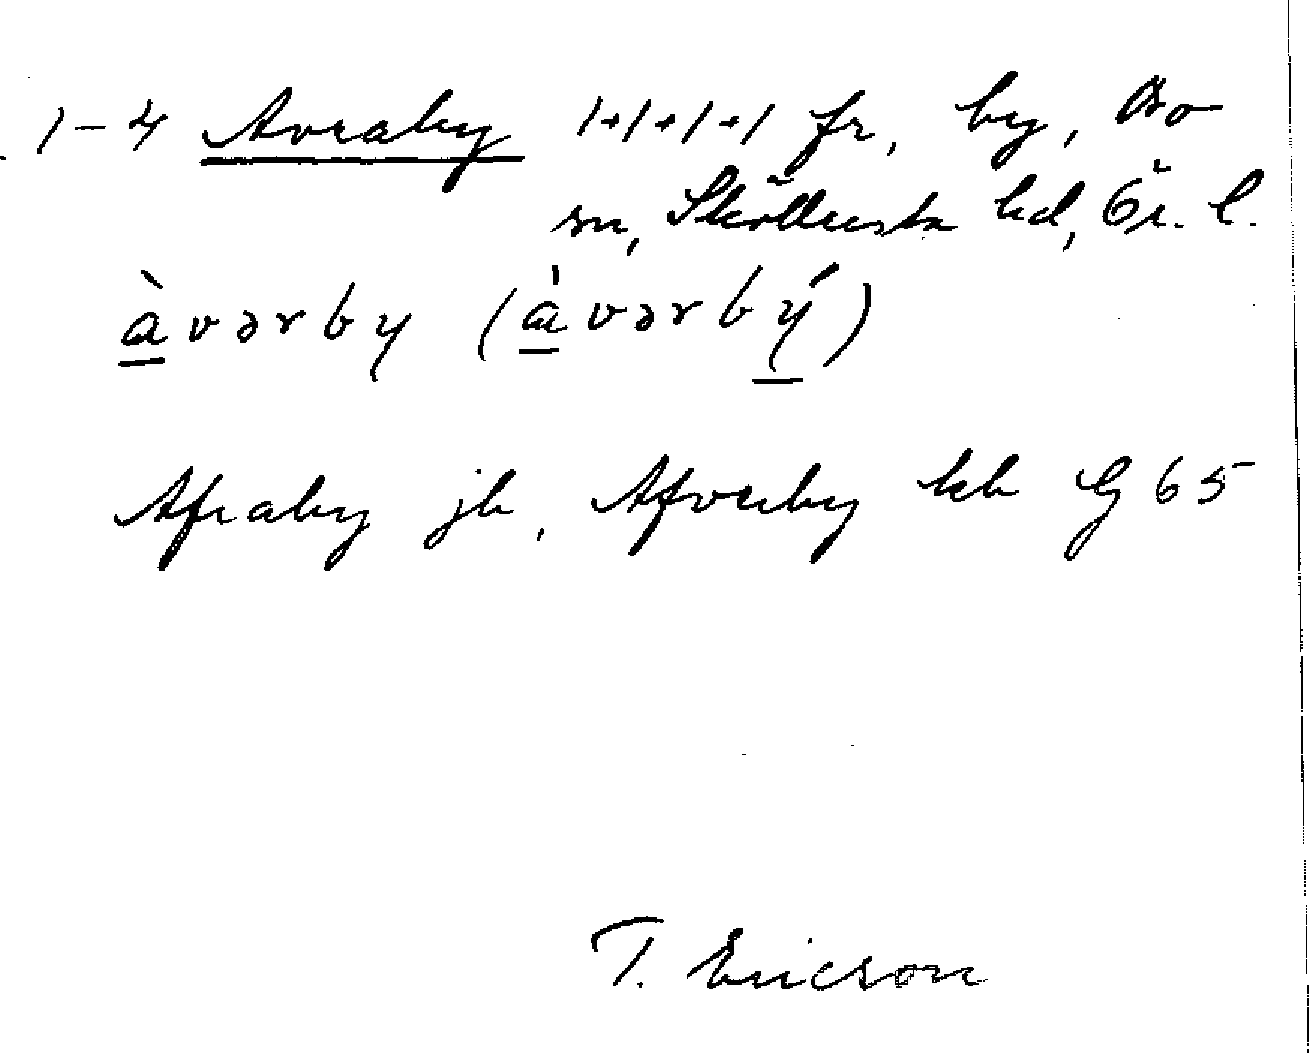 1–4 Avraby 1+1+1+1 fr, by, Bo
sn, Sköllersta hd, Ör. l.
à̱vərby (à̱vərbý̱)
Afraby jb, Afverby kb G 65
T. Ericson